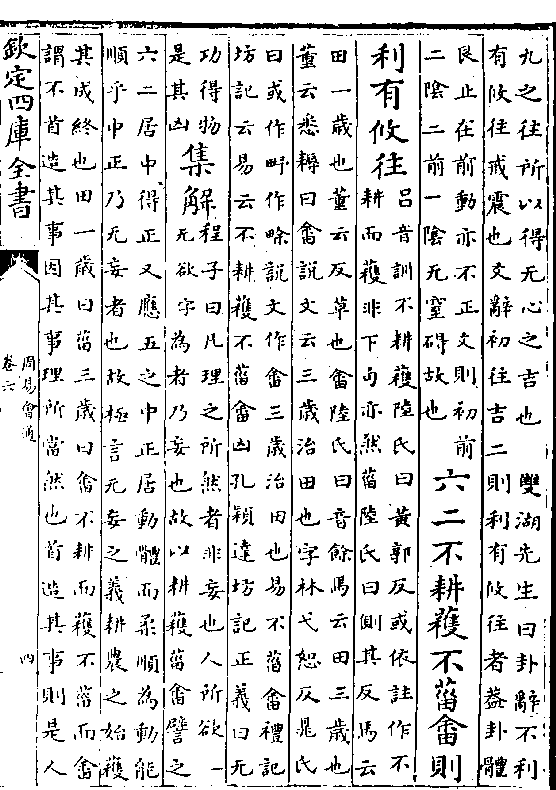 九之往所以得无心之吉也　雙湖先生曰卦辭不利
有攸往戒震也爻辭初往吉二則利有攸往者葢卦體
艮止在前動亦不正爻則初前
二陰二前一陰无窒碍故也
六二不耕穫不菑畬則
利有攸往
吕音訓不耕穫陸氏曰黄郭反或依註作不
耕而穫非下句亦然菑陸氏曰側其反馬云
田一歳也董云反草也畬陸氏曰音餘馬云田三歳也
董云悉耨曰畬說文云三歳治田也字林弋恕反晁氏
曰或作𤲞作畭說文作畬三歳治田也易不菑畬禮記
坊記云易云不耕穫不菑畬凶孔穎達坊記正義曰无
功得物
是其凶
集解
程子曰凡理之所然者非妄也人所欲一
无欲字為者乃妄也故以耕穫菑畬譬之
六二居中得正又應五之中正居動體而柔順為動能
順乎中正乃无妄者也故極言无妄之義耕農之始穫
其成終也田一歳曰菑三歳曰畬不耕而穫不菑而畬
謂不首造其事因其事理所當然也首造其事則是人
欽定四庫全書
周易會通
卷六
四